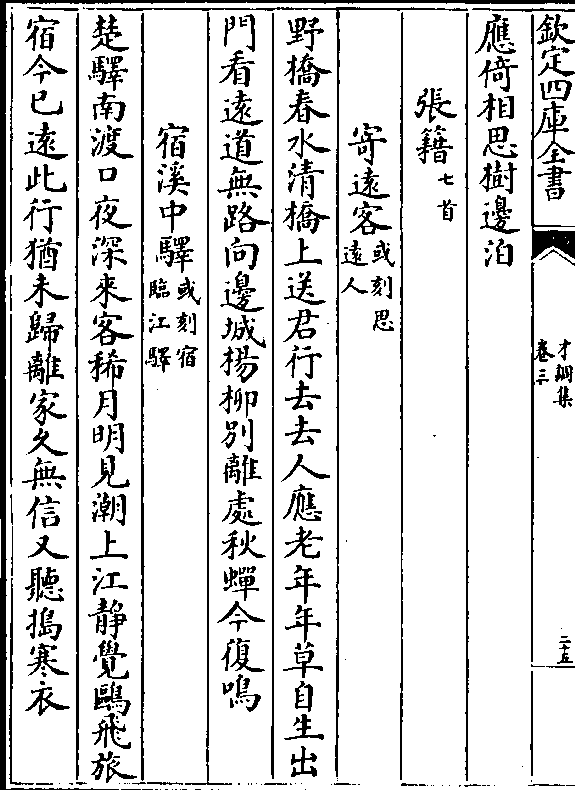 欽定四庫全書
才調集
卷三
二十五
應倚相思樹邊泊
張籍七首
寄遠客或刻思遠人
野橋春水清橋上送君行去去人應老年年草自生出
門看遠道無路向邊城楊柳別離處秋蟬今復鳴
宿溪中驛或刻宿臨江驛
楚驛南渡口夜深來客稀月明見潮上江靜覺鷗飛旅
宿今已遠此行猶未歸離家久無信又聽搗寒衣